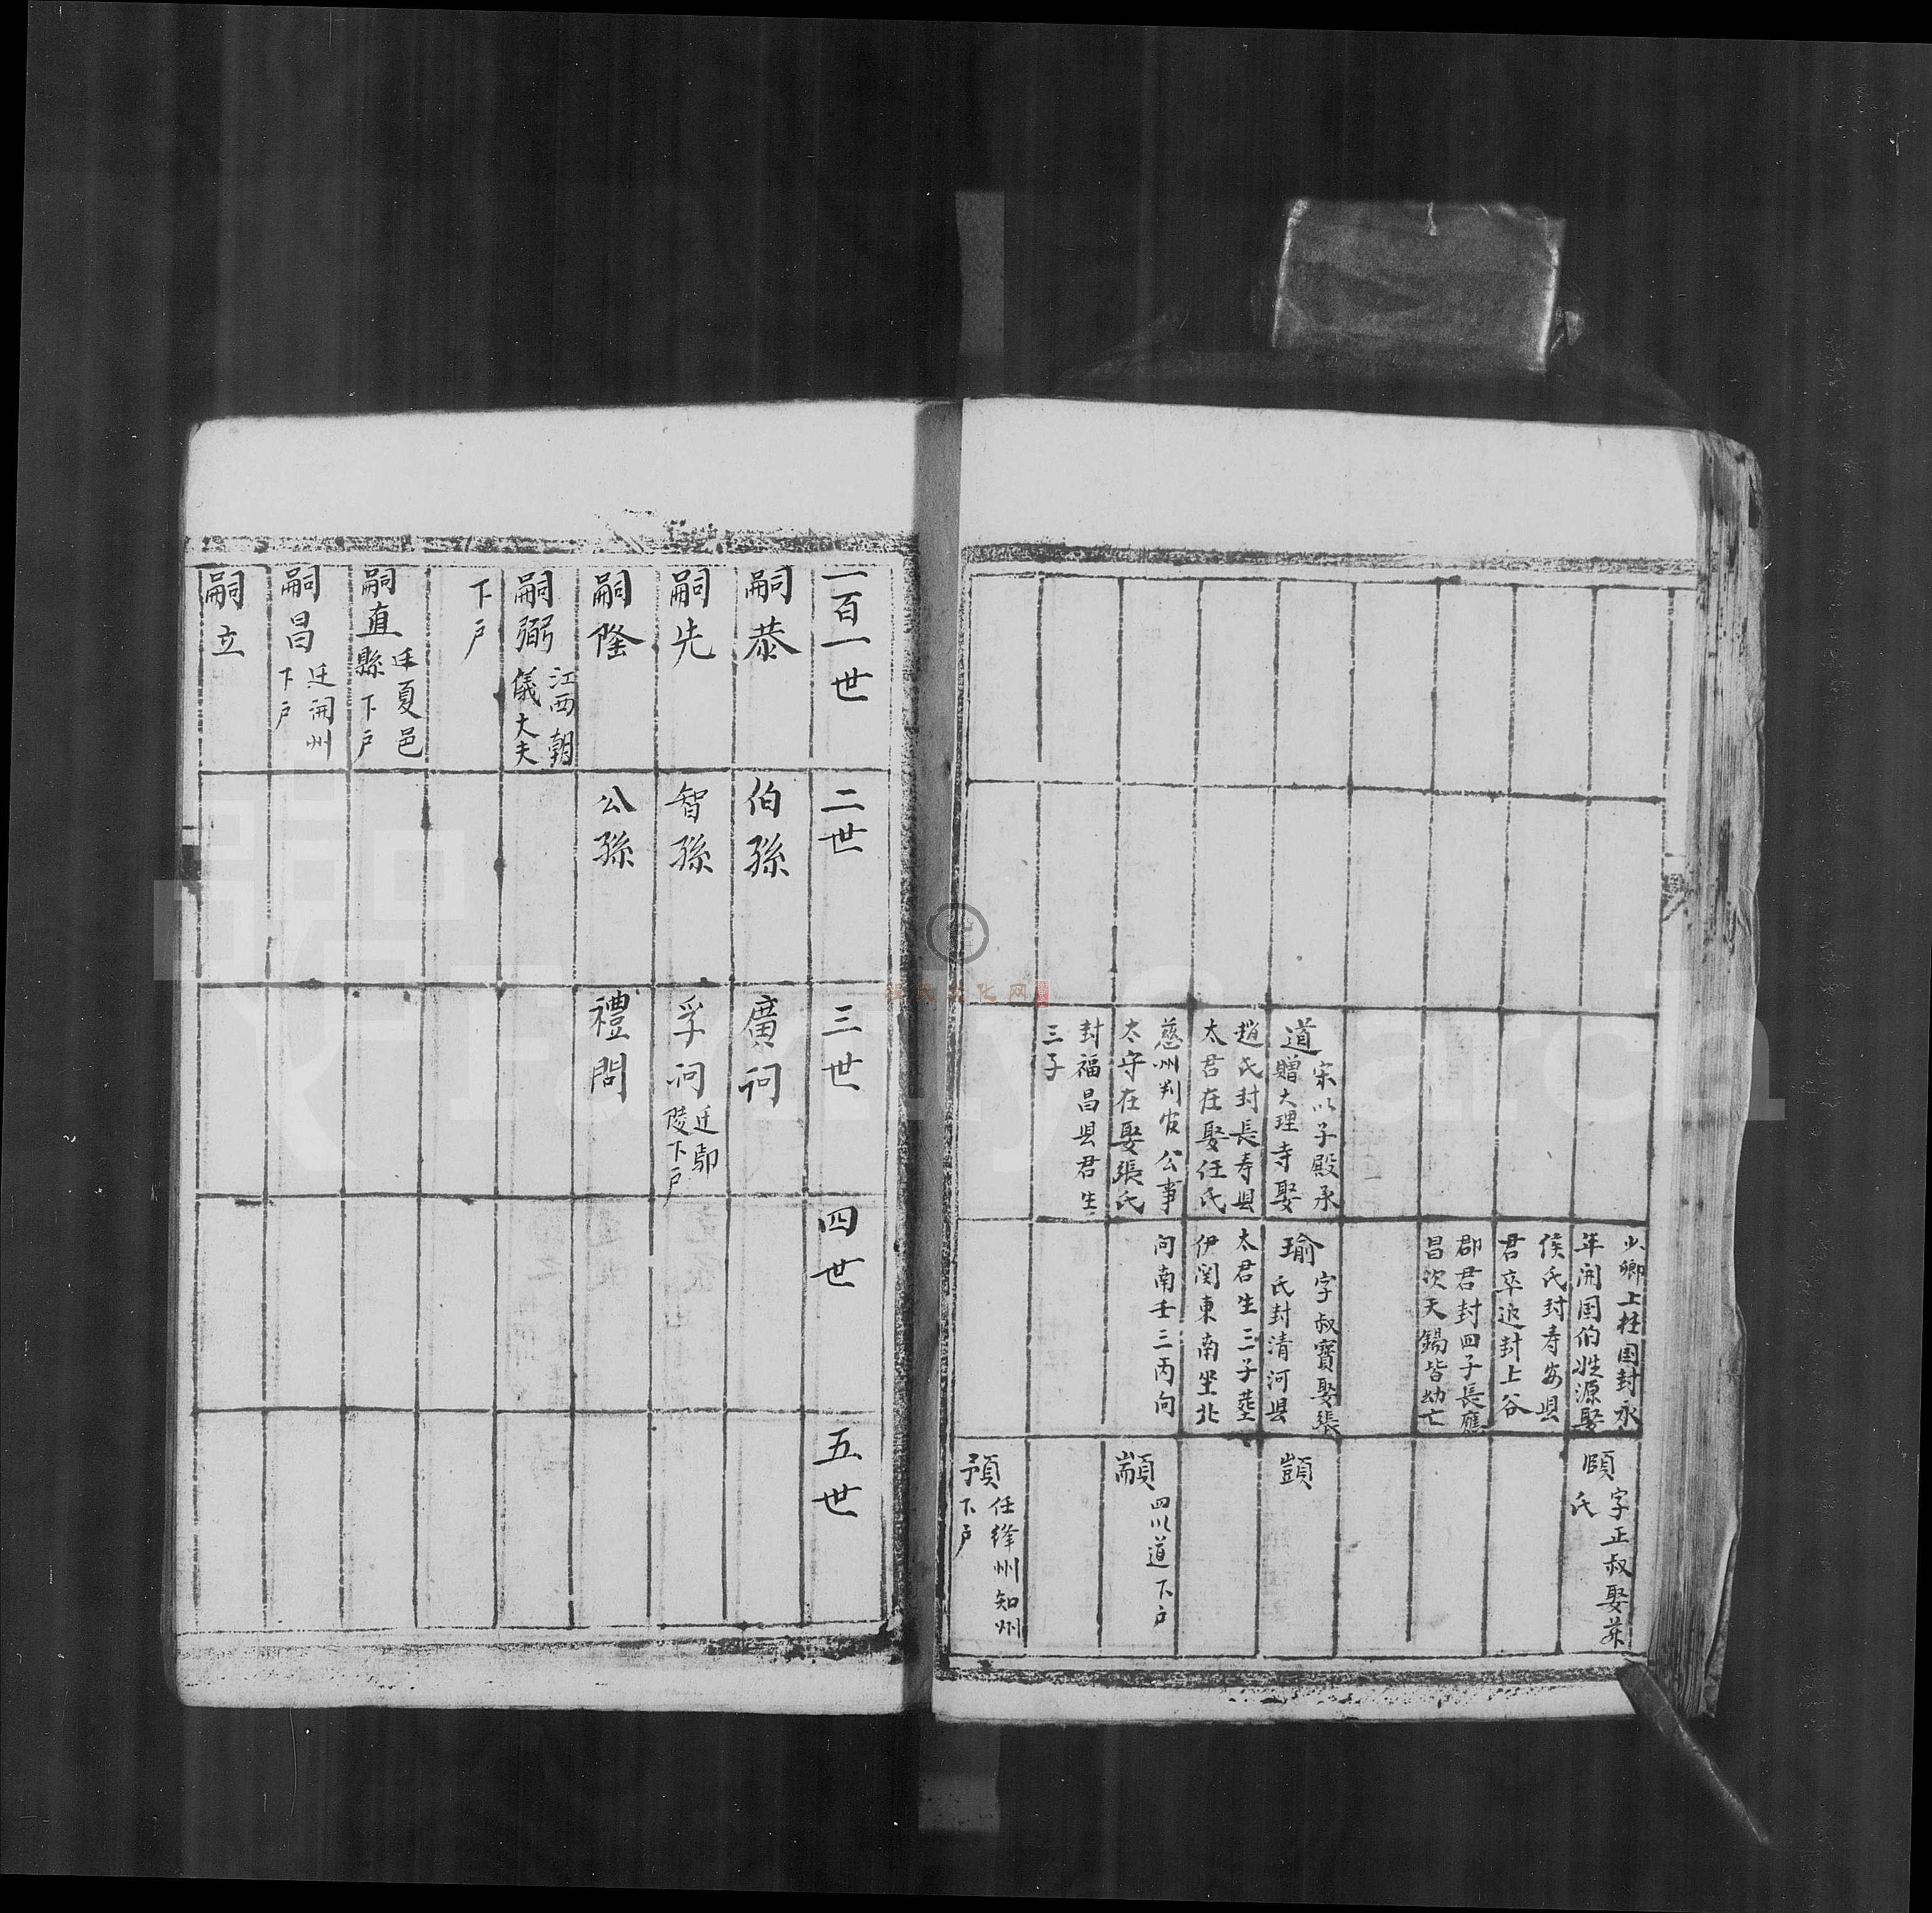 少卿上柱国封永
年開国伯姓源娶
侯氏封寿安县
君卒追封上谷
郡君封四子長應
昌次天錫皆幼亡
頤 字正叔娶
氏
道 宋以子殿承
贈大理寺娶
趙氏封長寿县
太君在娶任氏
慈州判官公事
太守在娶張氏
封福昌县君生
三子
瑜 字叔寶娶張
氏封清河县
太君生三子塟
伊闕東南坐北
向南壬三丙向
顗
顓 四川道下户
預 任绛州知州
下户
一百一世
二世
三世
四世
五世
嗣恭
伯孫
廣询
嗣先
智孫
孚询 迁鄢
陵下户
嗣隆
公孫
禮問
嗣弼 江西朝
儀大夫
下户
嗣直 迁夏邑
縣下户
嗣昌 迁開州
下户
嗣立
FamilySearch
程氏文化网